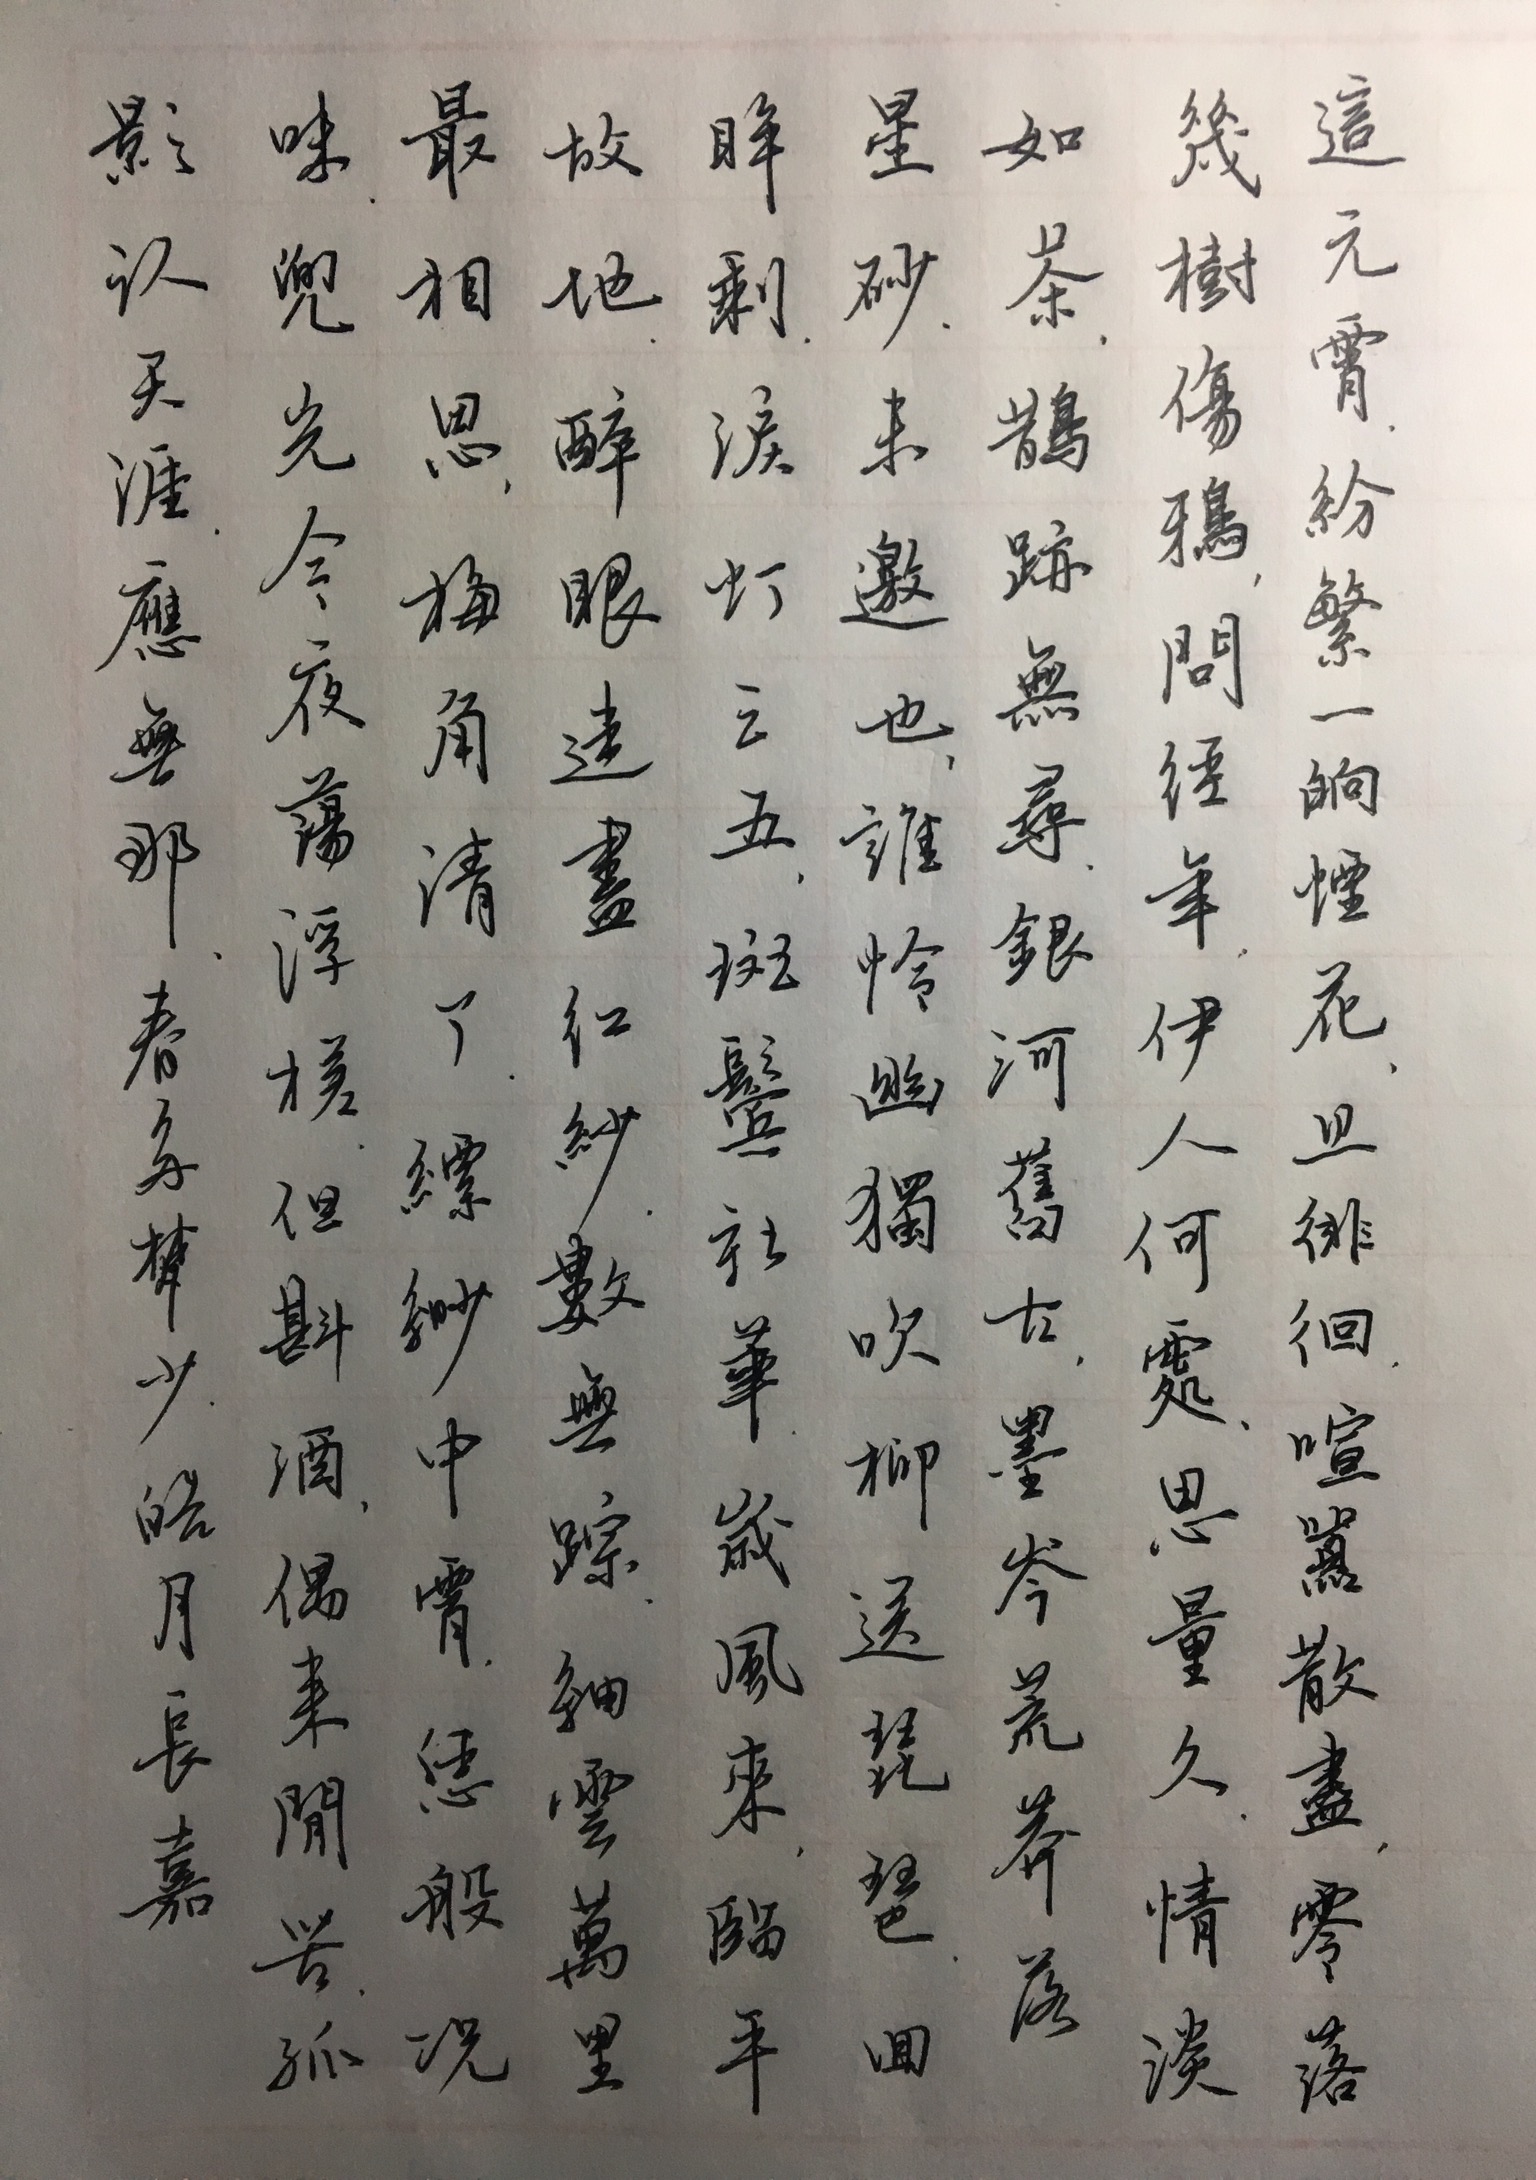 這元宵.紛繁一晌煙花,且徘徊.喧囂散盡,零落
幾樹傷鴉,問經年.伊人何處,思量久.情淡
如茶,鵲跡無尋.銀河舊古,墨岑荒莽落
星砂.未邀也,誰怜幽獨吹柳送琵琶.回
眸剩.淚灯三五,斑鬢韶華.歲風來,臨平
故地.醉眼迷盡紅紗.數無踪.細雲萬里
最相思,梅角清了.縹緲中宵.恁般况
味.兜兜今夜蕩浮槎.但斟酒,偶来閒苦.孤
影认天涯.應無那.春多夢少.皓月長嘉